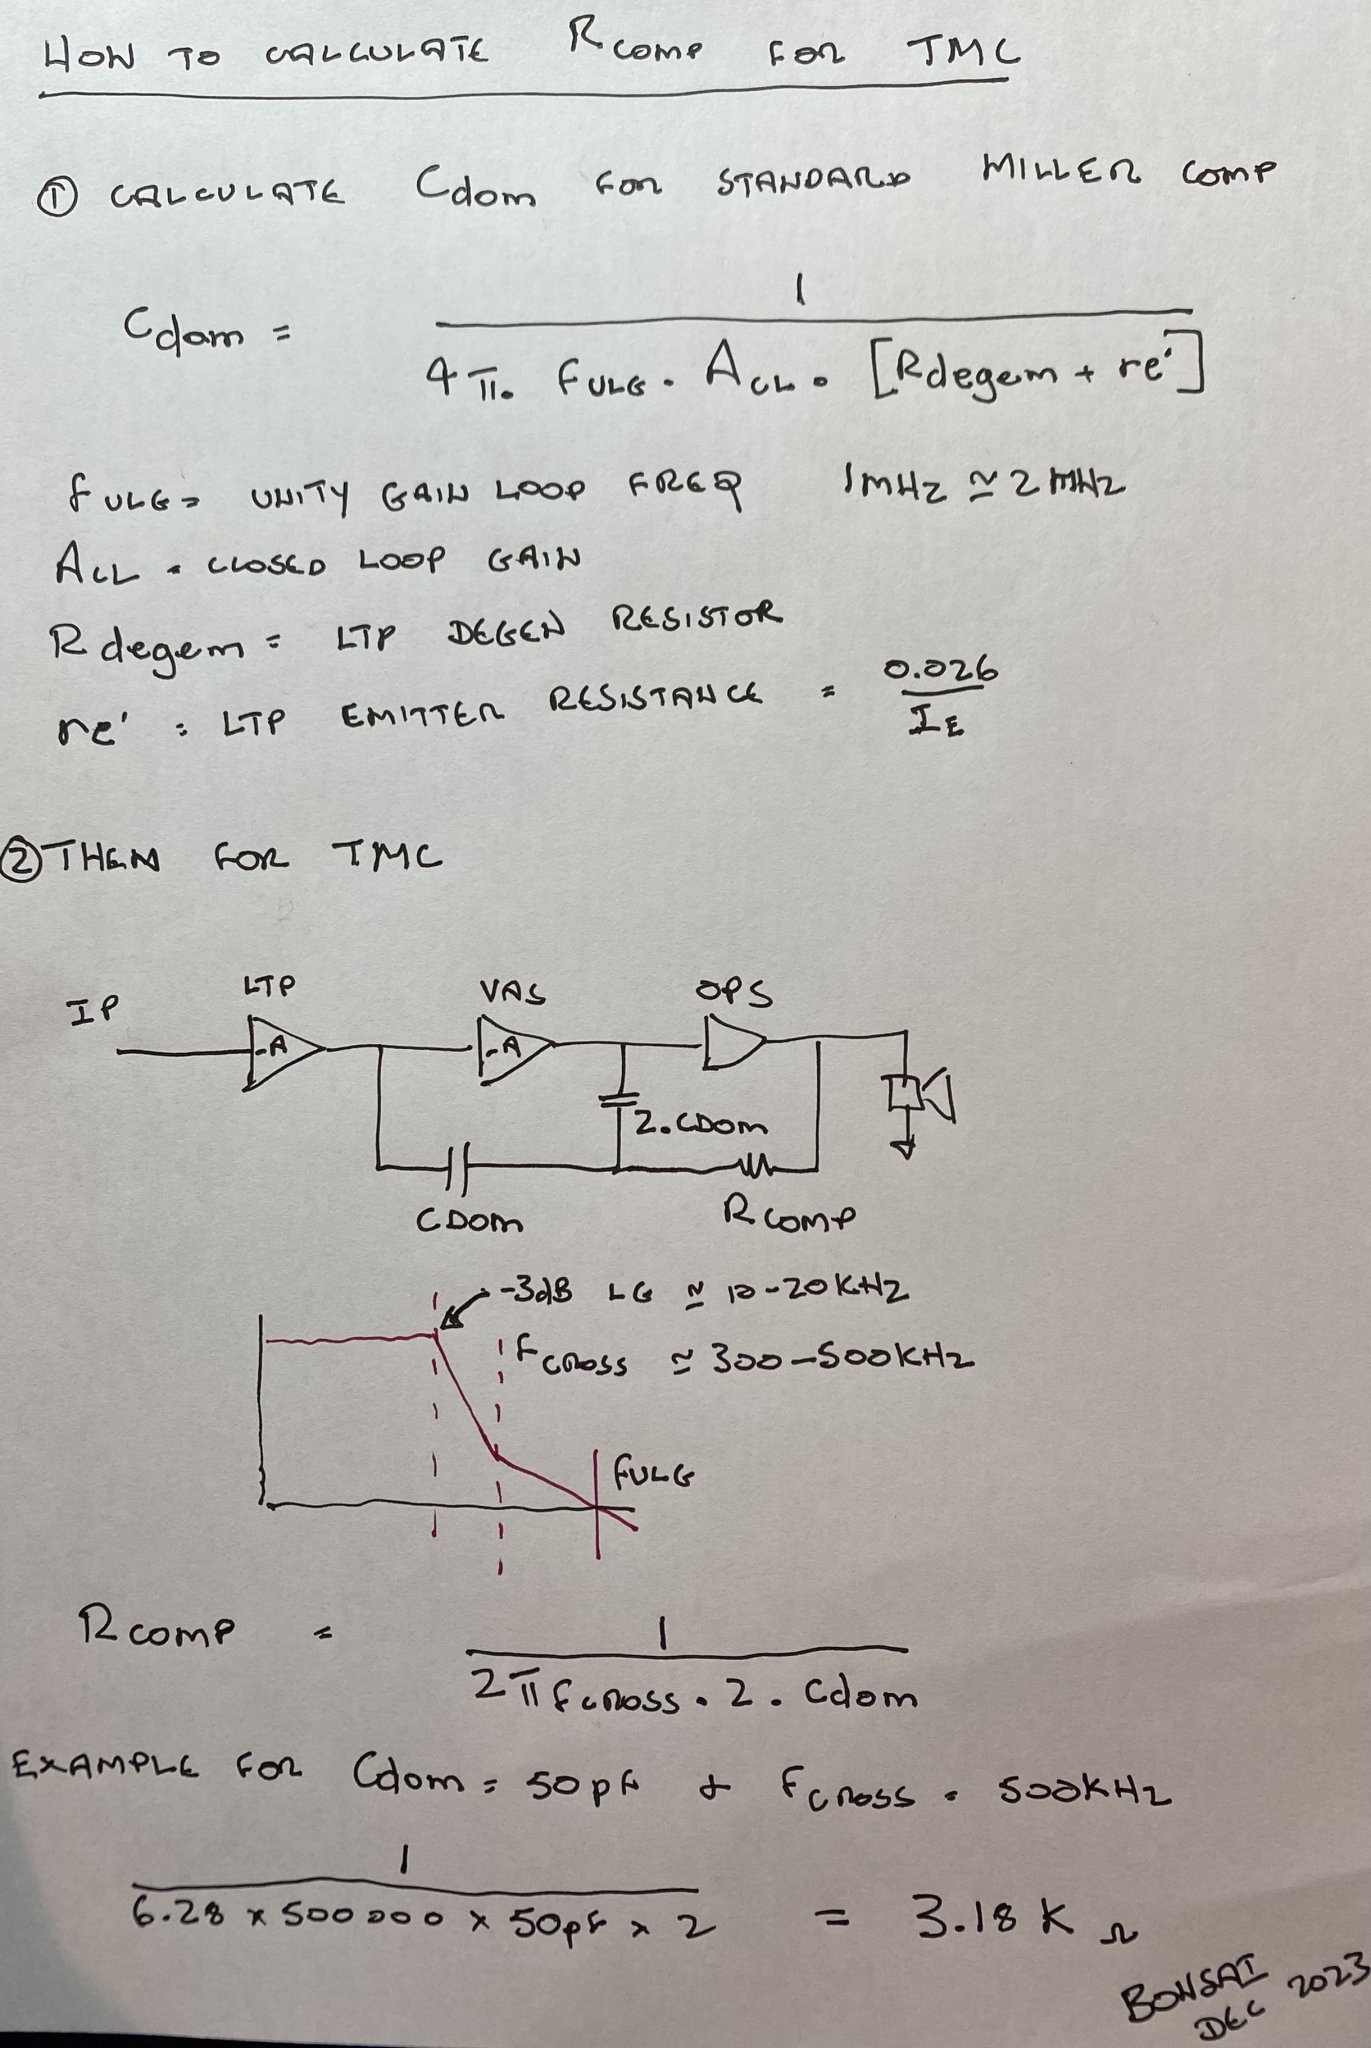 HOW TO CALCULATE Rcomp FOR TMC
① CALCULATE Cdom FOR STANDARD MILLER COMP
Cdom = 1 / 4π. fULG. ACL. [Rdegem + re']
fULG = UNITY GAIN LOOP FREQ 1MHz ≃ 2MHz
ACL = CLOSED LOOP GAIN
Rdegem = LTP DEGEN RESISTOR
re' = LTP EMITTER RESISTANCE = 0.026 / IE
② THEN FOR TMC
IP
LTP
VAS
OPS
-A
-A
2.CDOM
CDOM
RCOMP
-3dB LG ≃ 10-20KHz
FCROSS ≃ 300-500KHz
fULG
RCOMP = 1 / 2π fCROSS . 2 . Cdom
EXAMPLE FOR Cdom = 50pF + FCROSS = 500KHz
1 / 6.28 x 500000 x 50pF x 2 = 3.18K Ω
BONSAI
DEC 2023